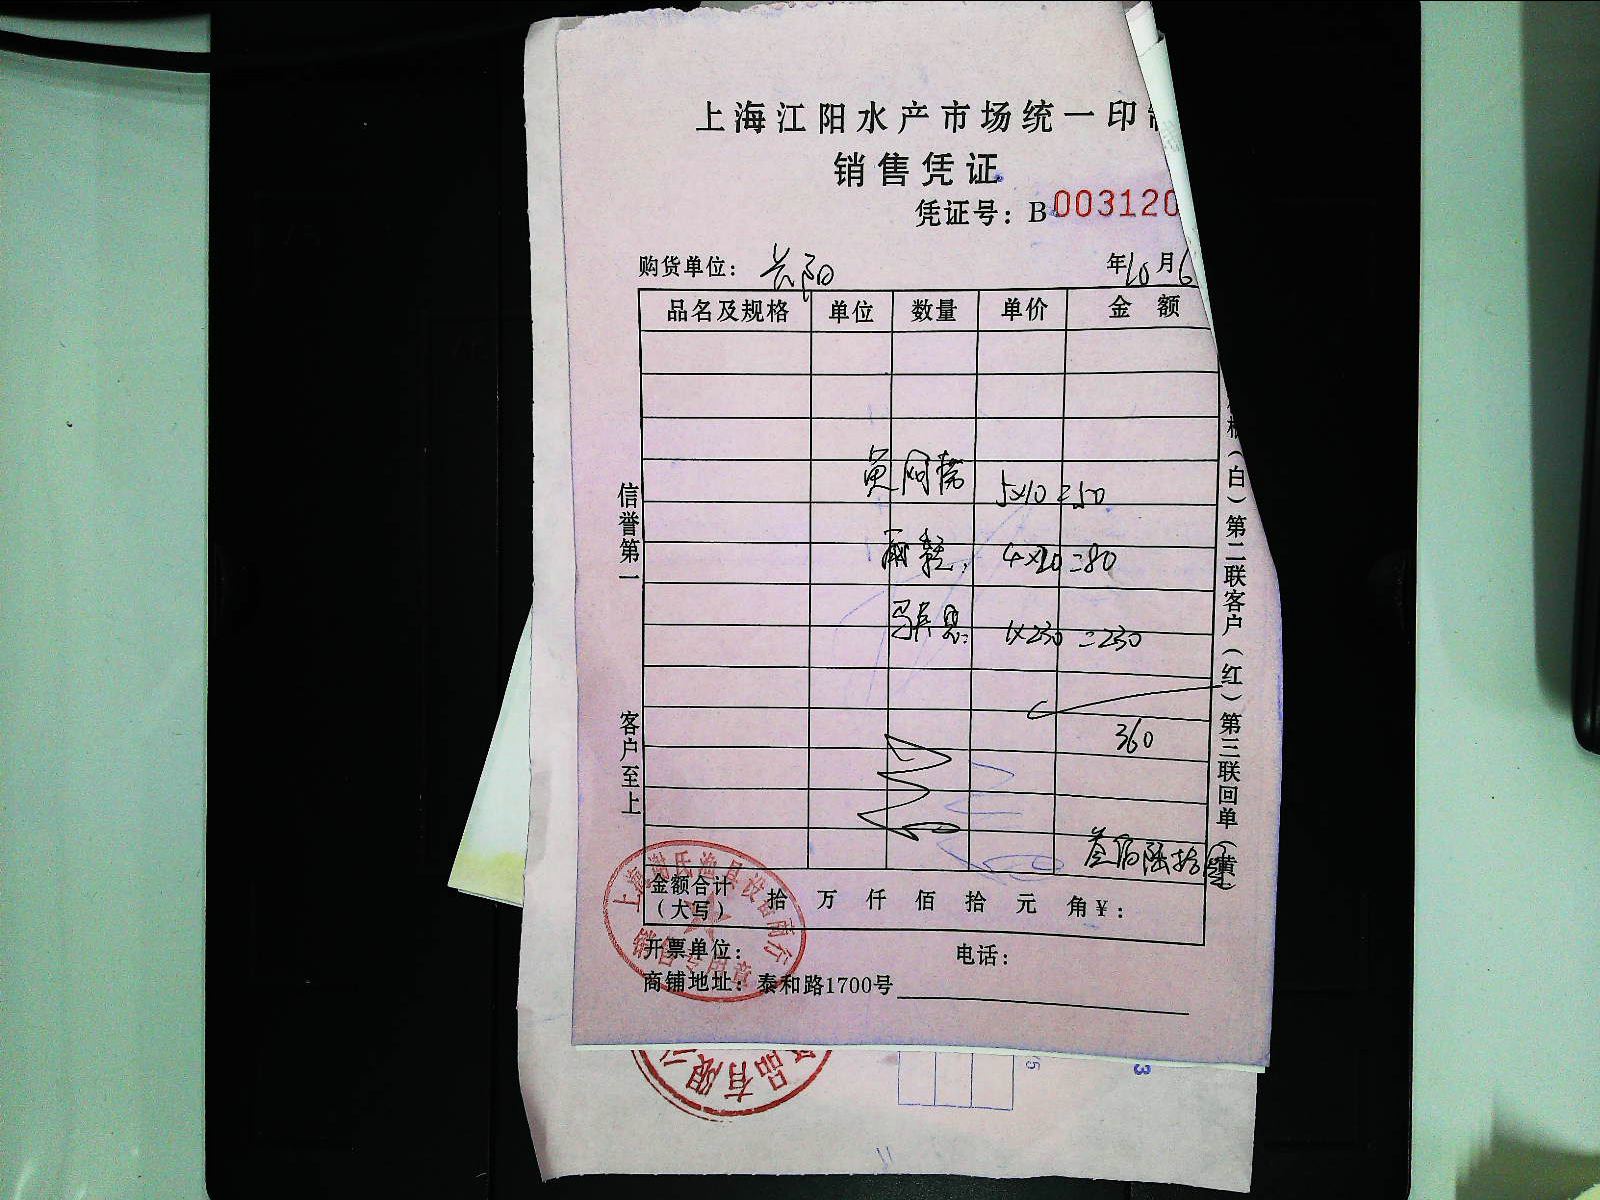 上海江阳水产市场统一印
销售凭证
凭证号：B 003120
购货单位： 年10月6
品名及规格 单位 数量 单价 金额
5×10=50
雨鞋， 4×20=80
1×230=230
360
叁佰陆拾
金额合计（大写） 拾 万 仟 佰 拾 元 角 ¥：
开票单位： 电话：
商铺地址：泰和路1700号
信誉第一
客户至上
（白）第二联客户（红）第三联回单（黄）
上海谢氏渔具设备商行
销售专用章
品有限